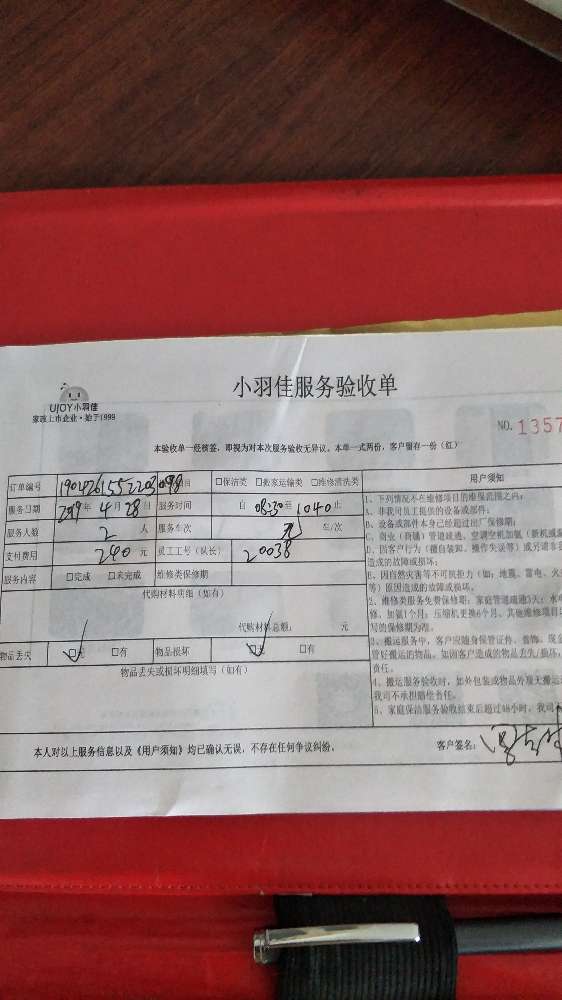 UJOY小羽佳
家政上市企业·始于1999
小羽佳服务验收单
NO.1357
本验收单一经核签，即视为对本次服务验收无异议。本单一式两份，客户留存一份（红）
订单编号 项目 □保洁类 □搬家运输类 □维修清洗类
服务日期 2019 年 4 月 28 日 服务时间 自 08:30 至 1040 止
服务人数 2 人 服务车次 车/次
支付费用 240 元 员工工号（队长） 20038
服务内容 □完成 □未完成 维修类保修期
代购材料明细（如有）
代购材料总额： 元
物品丢失 □无 □有 物品损坏 □无 □有
物品丢失或损坏明细填写（如有）
用户须知
1、下列情况不在维修项目的维保范围之内：
A、非我司员工提供的设备或部件；
B、设备或部件本身已经超过出厂保修期；
C、商业（商铺）管道疏通、空调空机加氨（新机或漏
D、因客户行为（擅自装卸、操作失误等）或元谱非
造成的故障或损坏；
E、因自然灾害等不可抗拒力（如：地震、雷电、火
等）原因造成的故障或损坏。
2、维修类服务免费保修期：家庭管道疏通3天；水电
修、加氨1个月；压缩机更换6个月、其他维修项目
写的保修期为准。
3、搬运服务中，客户应随身保管证件、首饰、现金
管好搬运的物品。如因客户造成的物品丢失/损坏，
责任。
4、搬运服务验收时，如外包装或物品外观无搬运
我司不承担赔偿责任。
5、家庭保洁服务验收结束后超过48小时，我司
本人对以上服务信息以及《用户须知》均已确认无误，不存在任何争议纠纷。 客户签名：